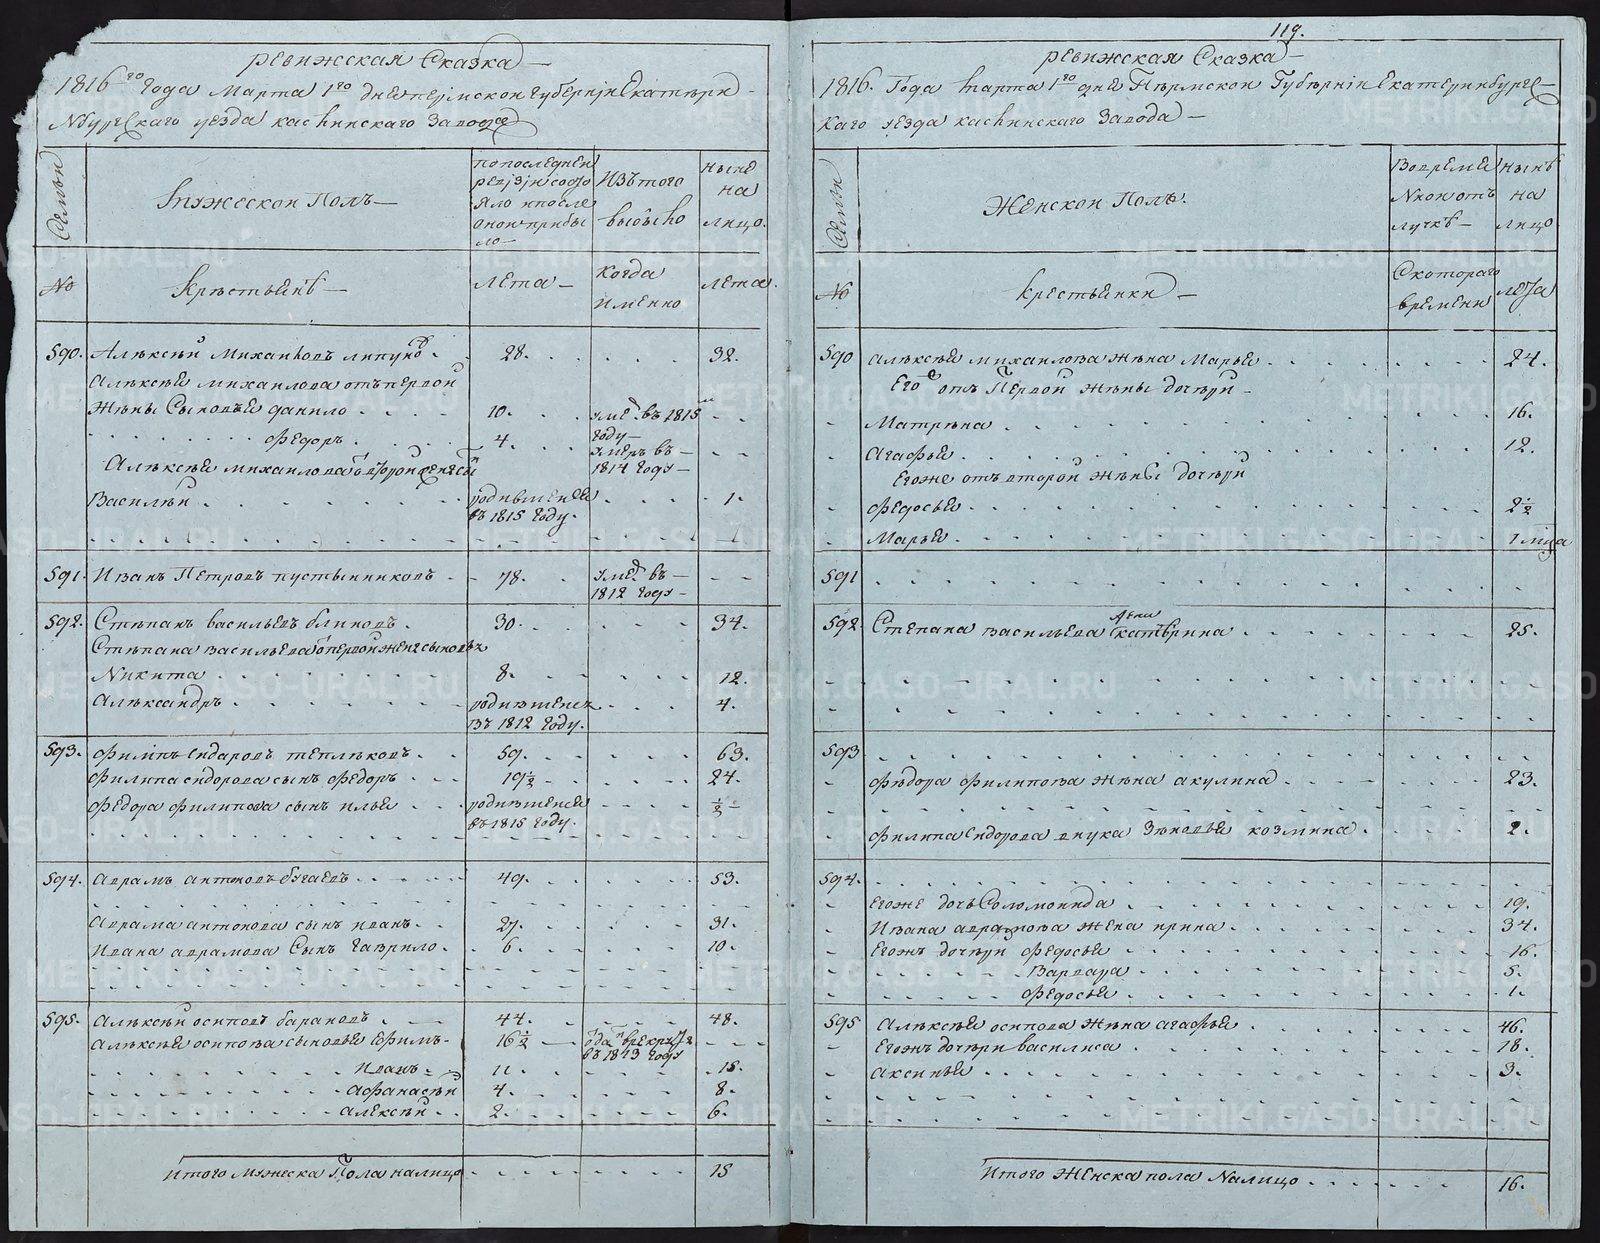 119.
Ревижская Сказка
1816го Года Марта 1го дня Пермской губернiи Екатерин-
бургскаго уезда каслинскаго Завода
Семьи
Мужескои Полъ
по последней ревизiи состояло и после оной прибыло
Изътого выбыло
ныне на лицо.
№
Крестьянѣ
лета
Когда именно
лета.
590. Алѣксѣй Михаиловъ липунов 28. 32.
Алѣксѣя михаилова отъ первой
Жѣны Сыновья данило 10. умер въ 1815 году
Федоръ 4. умеръ въ 1814 году
Василѣй родившейся въ 1815 году. 1.
591. Иванъ Петровъ пустынниковъ 78. умер въ 1812 году
592. Стѣпанъ васильевъ блиновъ. 30. 34.
Стѣпана васильева от первой жены сыновья
Никита 8. 12.
Алѣксандръ родившейся въ 1812 году. 4.
593. Филипъ Сидаровъ теплѣковъ 59. 63.
Филипа сидорова сынъ Федоръ 19½ 24.
Федора филипова сынъ илья родившейся въ 1815 году. ½
594. Аврамъ антоновъ бугаевъ 49. 53.
Аврама антонова сынъ иванъ 27. 31.
Ивана аврамова Сынъ Гаврило. 6. 10.
595. Алѣксѣй осиповъ барановъ 44. 48.
Алѣксѣя осипова сыновья Ефимъ 16½ въ рекруты въ 1813 году
Иванъ 11. 15.
Афанасѣй 4. 8.
Алексѣй 2. 6.
Итого Мужеска Пола налицо 15
Ревижская Сказка
1816. Года марта 1го дня Пѣрмской Губѣрнiи Екатеринбургс-
каго уезда каслинскаго Завода
Семьи
Женской Полъ.
Вовремѣнной отълучкѣ
нынѣ на лицо
№
крестьянки
Скотораго времени
лета
590 Алѣксѣя михаилова жѣна Марья 24.
Его отъ Первой жѣны дочѣри
Матрѣна 16.
Агафья 12.
Егоже отъ второй жѣны дочѣри
Федосья 2½
Марья 1 мца
591
592 Степана васильева жена Катѣрина 25.
593
Фѣдора филипова жѣна акулина 23.
Филипа Сидорова внука Зѣновья козмина. 2.
594.
Егоже дочь Соломонида 19.
Ивана аврамова жена ирина 34.
Егожъ дочѣри Федосья 16.
Варвара 5.
Федосья 1.
595 Алѣксѣя осипова жѣна агафья 46.
Егожъ дочѣри василиса 18.
Аксинья 3.
Итого Женска пола Налицо 16.
METRIKI.GASO-URAL.RU